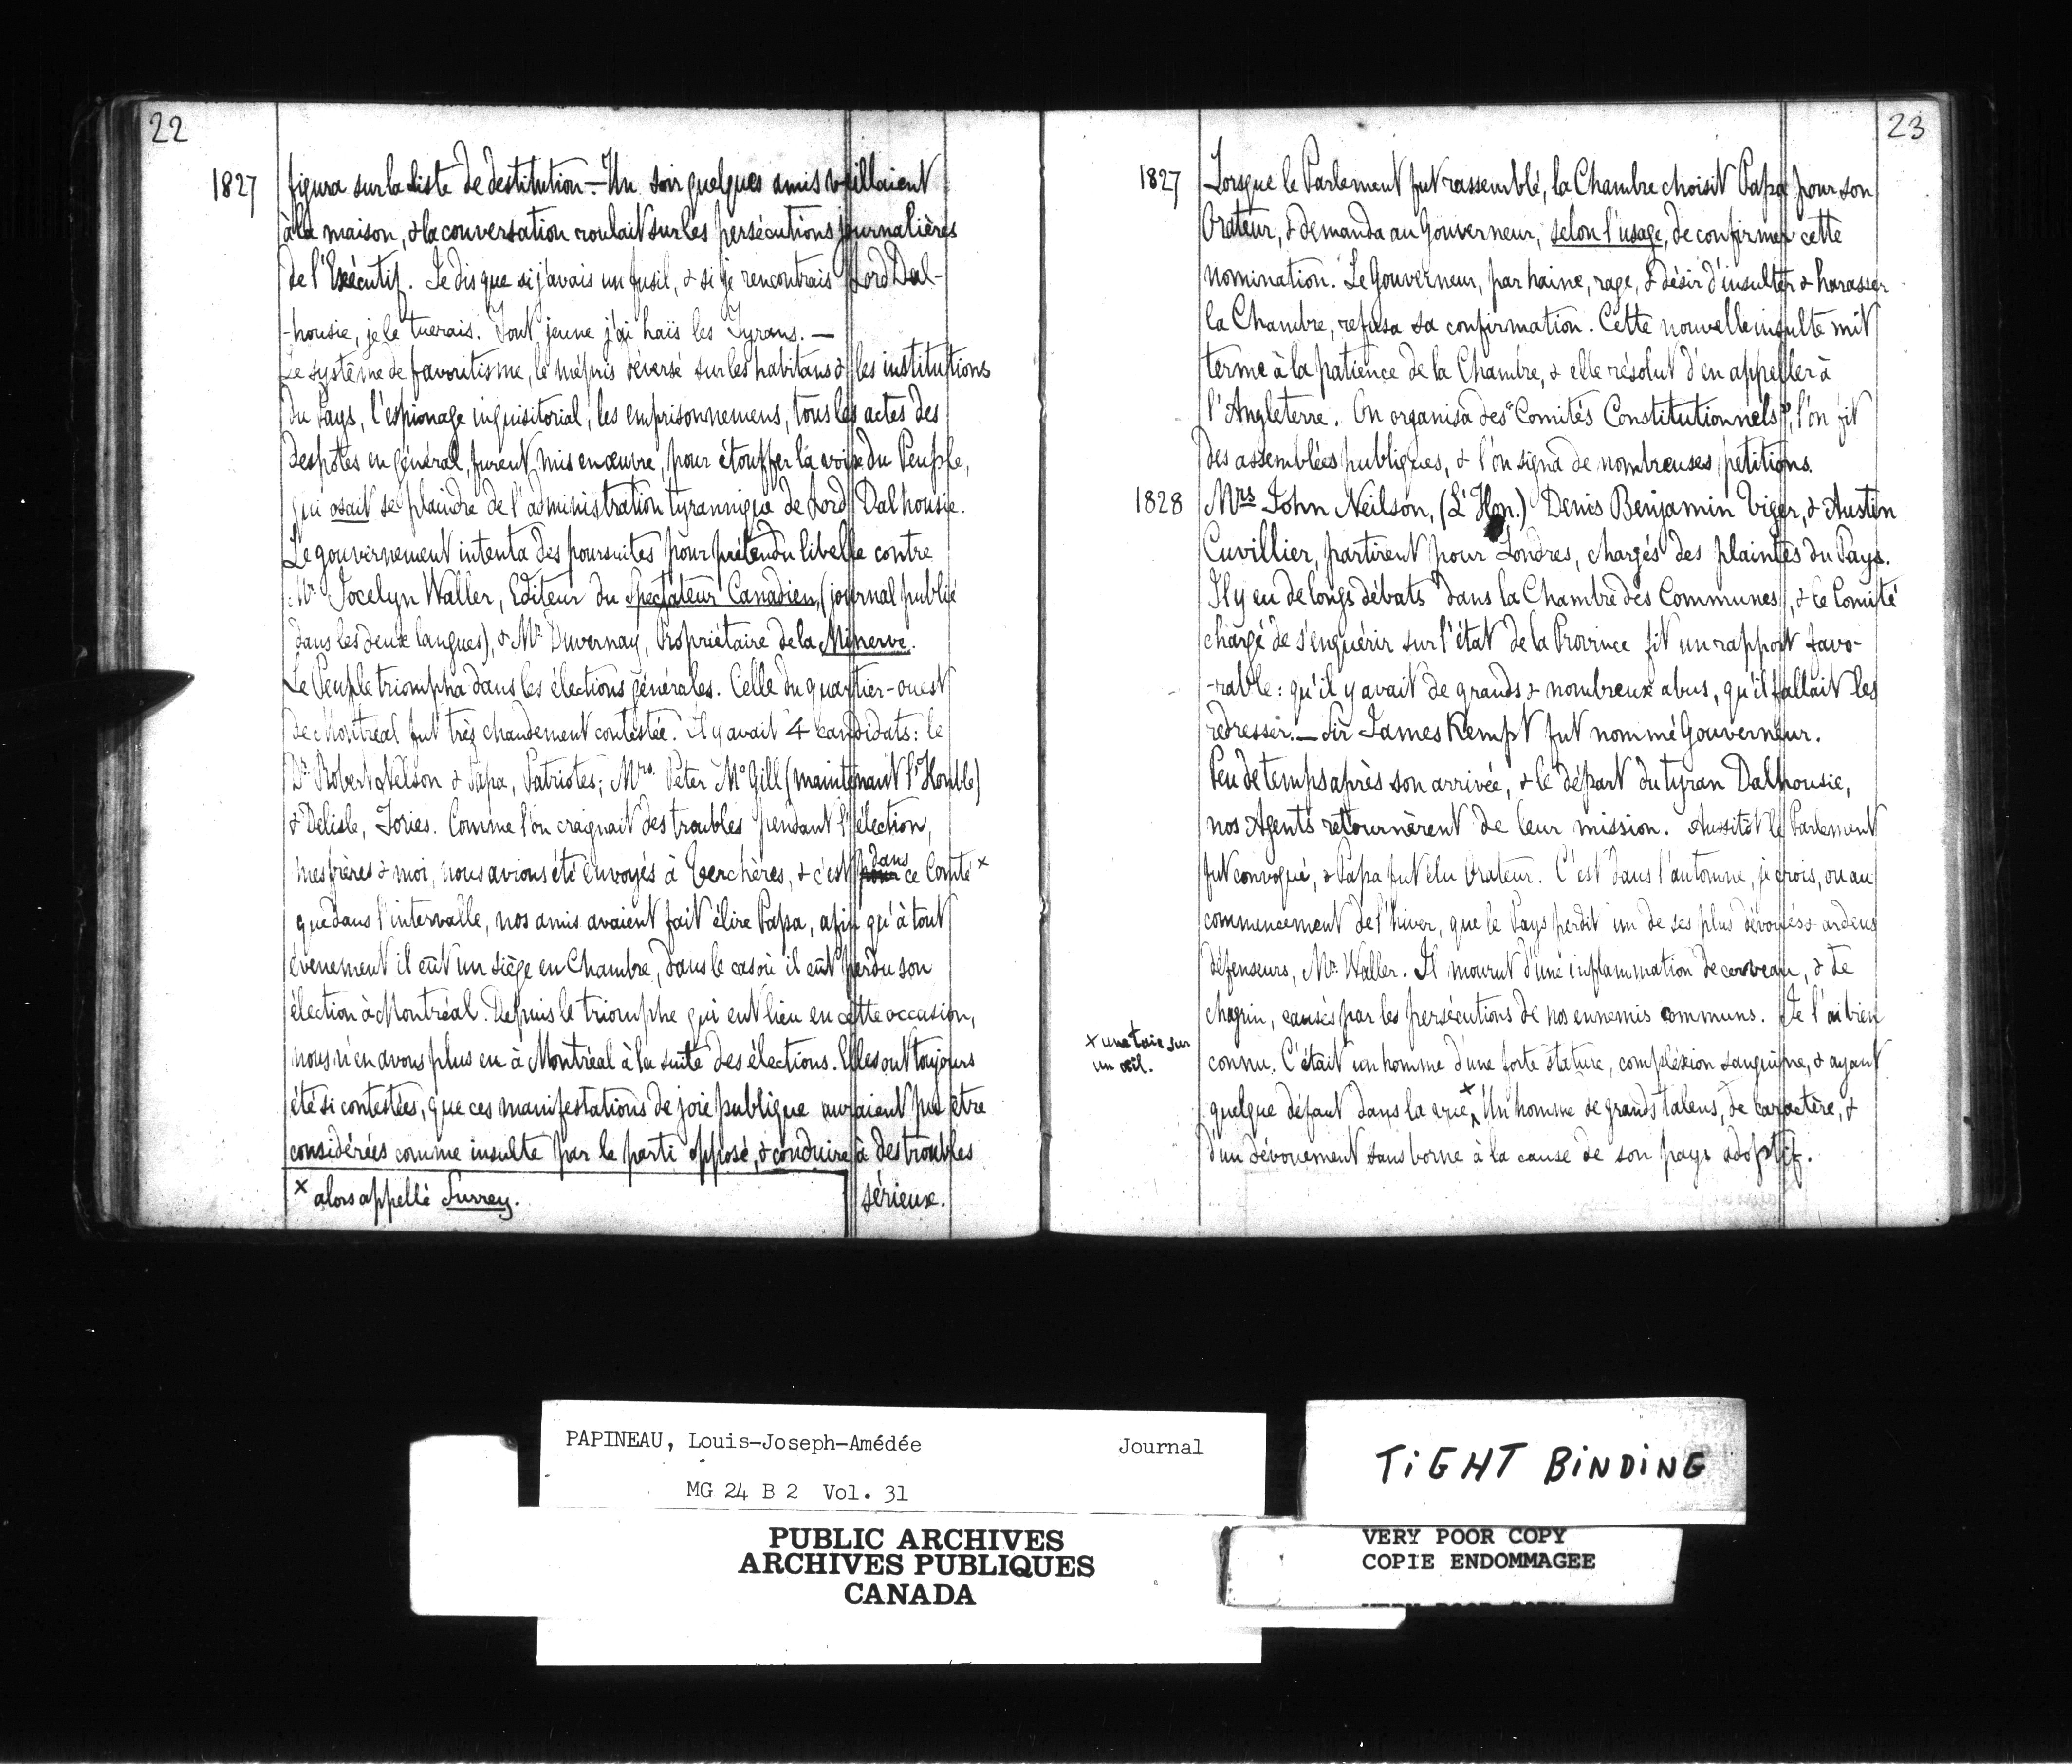 22
1827
figura sur la liste de destitution. — Un soir quelques amis veillaient
à la maison, & la conversation roulait sur les persécutions journalières
de l'Exécutif. Je dis que si j'avais un fusil, & si je rencontrais Lord Dal-
-housie, je le tuerais. Tout jeune j'ai haïs les Tyrans. —
Le système de favoritisme, le mépris déversé sur les habitans & les institutions
du Pays, l'espionage inquisitorial, les emprisonnemens, tous les actes des
despotes en général, furent mis en œuvre, pour étouffer la voix du Peuple,
qui osait se plaindre de l'administration tyrannique de Lord Dalhousie.
Le gouvernement intenta des poursuites pour prétendu libelle contre
Mr. Jocelyn Waller, Editeur du Spectateur Canadien, (journal publié
dans les deux langues), & Mr. Duvernay, Propriétaire de la Minerve.
Le Peuple triompha dans les élections générales. Celle du quartier-ouest
de Montréal fut très chaudement contestée. Il y avait 4 candidats: le
Dr. Robert Nelson & Papa, Patriotes; Mrs. Peter McGill (maintenant l'Honble)
& Delisle, Tories. Comme l'on craignait des troubles pendant l'élection,
mes frères & moi, nous avions été envoyés à Verchères, & c'est pour dans ce Comté x
que dans l'intervalle, nos amis avaient fait élire Papa, afin qu'à tout
évenement il eût un siège en Chambre, dans le cas où il eût perdu son
élection à Montréal. Depuis le triomphe qui eut lieu en cette occasion,
nous n'en avons plus eu à Montréal à la suite des élections. Elles ont toujours
été si contestées, que ces manifestations de joie publique auraient pu être
considérées comme insulte par le parti opposé, & conduire à des troubles
sérieux.
x alors appellé Surrey.
23
1827
Lorsque le Parlement fut rassemblé, la Chambre choisit Papa pour son
Orateur, & demanda au Gouverneur, selon l'usage, de confirmer cette
nomination. Le Gouverneur, par haine, rage, & désir d'insulter & harasser
la Chambre, refusa sa confirmation. Cette nouvelle insulte mit
terme à la patience de la Chambre, & elle résolut d'en appeller à
l'Angleterre. On organisa des "Comités Constitutionnels", l'on fit
des assemblées publiques, & l'on signa de nombreuses petitions.
1828
Mrs John Neilson, (L'Hon.) Denis Benjamin Viger, & Austin
Cuvillier, partirent pour Londres, chargés des plaintes du Pays.
Il y eu de longs débats dans la Chambre des Communes, & le Comité
chargé de s'enquérir sur l'état de la Province fit un rapport favo-
-rable: qu'il y avait de grands & nombreux abus, qu'il fallait les
redresser. — Sir James Kempt fut nommé Gouverneur.
Peu de temps après son arrivée, & le départ du tyran Dalhousie,
nos Agents retournèrent de leur mission. Aussitot le Parlement
fut convoqué, & Papa fut élu Orateur. C'est dans l'automne, je crois, ou au
commencement de l'hiver, que le Pays perdit un de ses plus dévoués & ardens
défenseurs, Mr. Waller. Il mourut d'une inflammation de cerveau, & de
chagrin, causés par les persécutions de nos ennemis communs. Je l'ai bien
connu. C'était un homme d'une forte stature, compléxion sanguine, & ayant
quelque défaut dans la vue x. Un homme de grands talens, de caractère, &
d'un dévouement sans borne à la cause de son pays adoptif.
x une taie sur
un œil.
PAPINEAU, Louis-Joseph-Amédée Journal
MG 24 B 2 Vol. 31
PUBLIC ARCHIVES
ARCHIVES PUBLIQUES
CANADA
TIGHT BINDING
VERY POOR COPY
COPIE ENDOMMAGEE